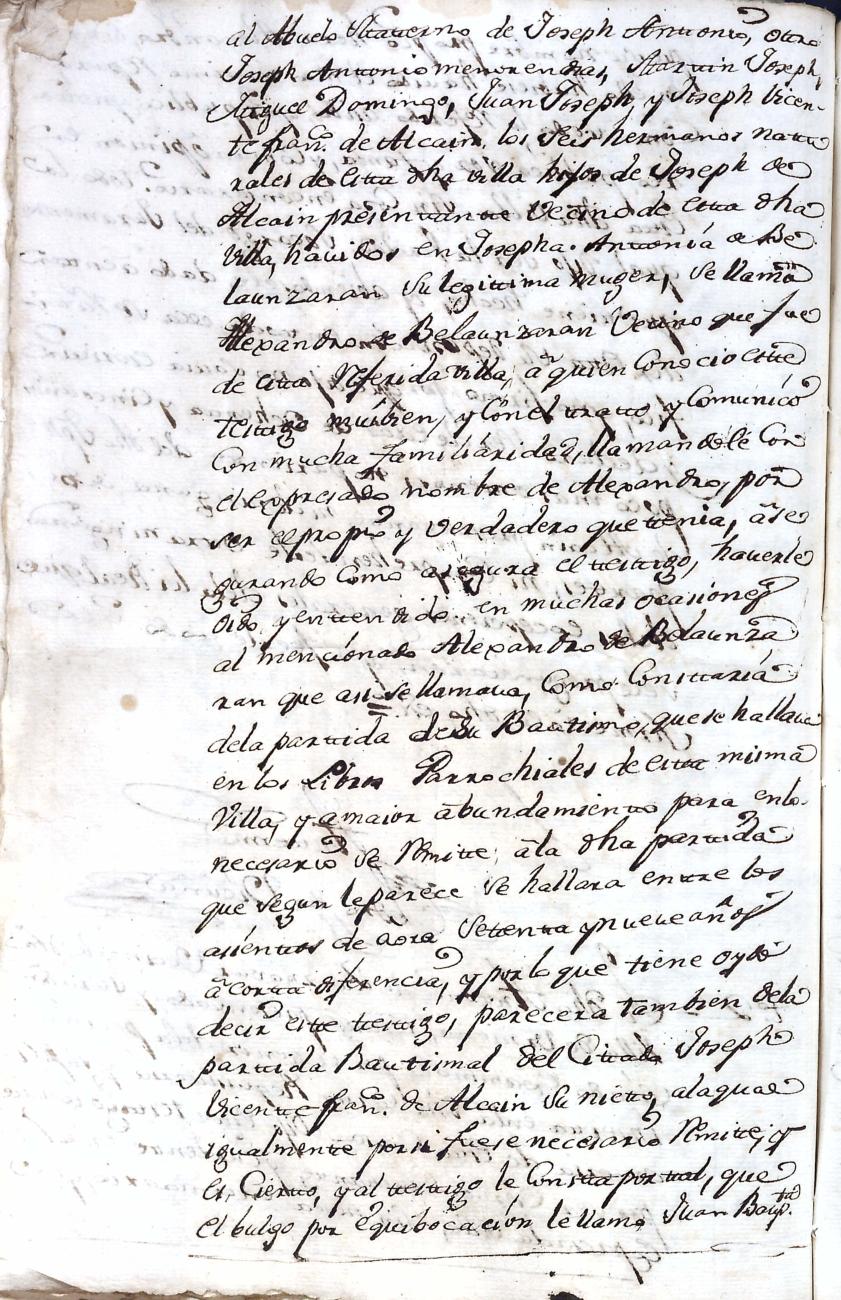 al Abuelo Materno de Joseph Antonio, otro
Joseph Antonio menor en dias, Martin Joseph,
Miguel Domingo, Juan Joseph, y Joseph Vicen-
te fran.co de Alcain, los seis hermanos natu
rales de esta dha villa hijos de Joseph de
Alcain presentante Vecino de esta dha
villa, havidos en Josepha Antonia de Be
launzaran su legittima muger, se llamó
Alexandro de Belaunzaran Vecino que fue
de esta referida villa, a quien Conocio este
testigo mui bien, y Con el tratto y Comunicó
Con mucha familiaridad, llamandole Con
el expresado nombre de Alexandro, por
ser el propio y verdadero que tenia, ase
gurando Como asegura el testigo, haverle
oido y entendido en muchas ocasiones
al mencionado Alexandro de Belaunza
ran que asi se llamava, Como Constaria
dela partida de su Bautismo, que se hallava
en los Libros Parrochiales de esta misma
Villa, y a maior abundamiento para enlo
necesario se remite, ala dha partida
que segun le parece se hallara entre los
asientos de aora settenta y nueve años
a corta diferencia, y por lo que tiene oydo
decir este testigo, parecera tambien dela
partida Bautismal del Cittado Joseph
Vicente fran.co de Alcain su nieto, ala qual
igualmente por si fuese necesario remite, q.e
es Cierto, y al testigo le Consta por tal, que
el bulgo por equibocacion le llamo Juan Bap.ta